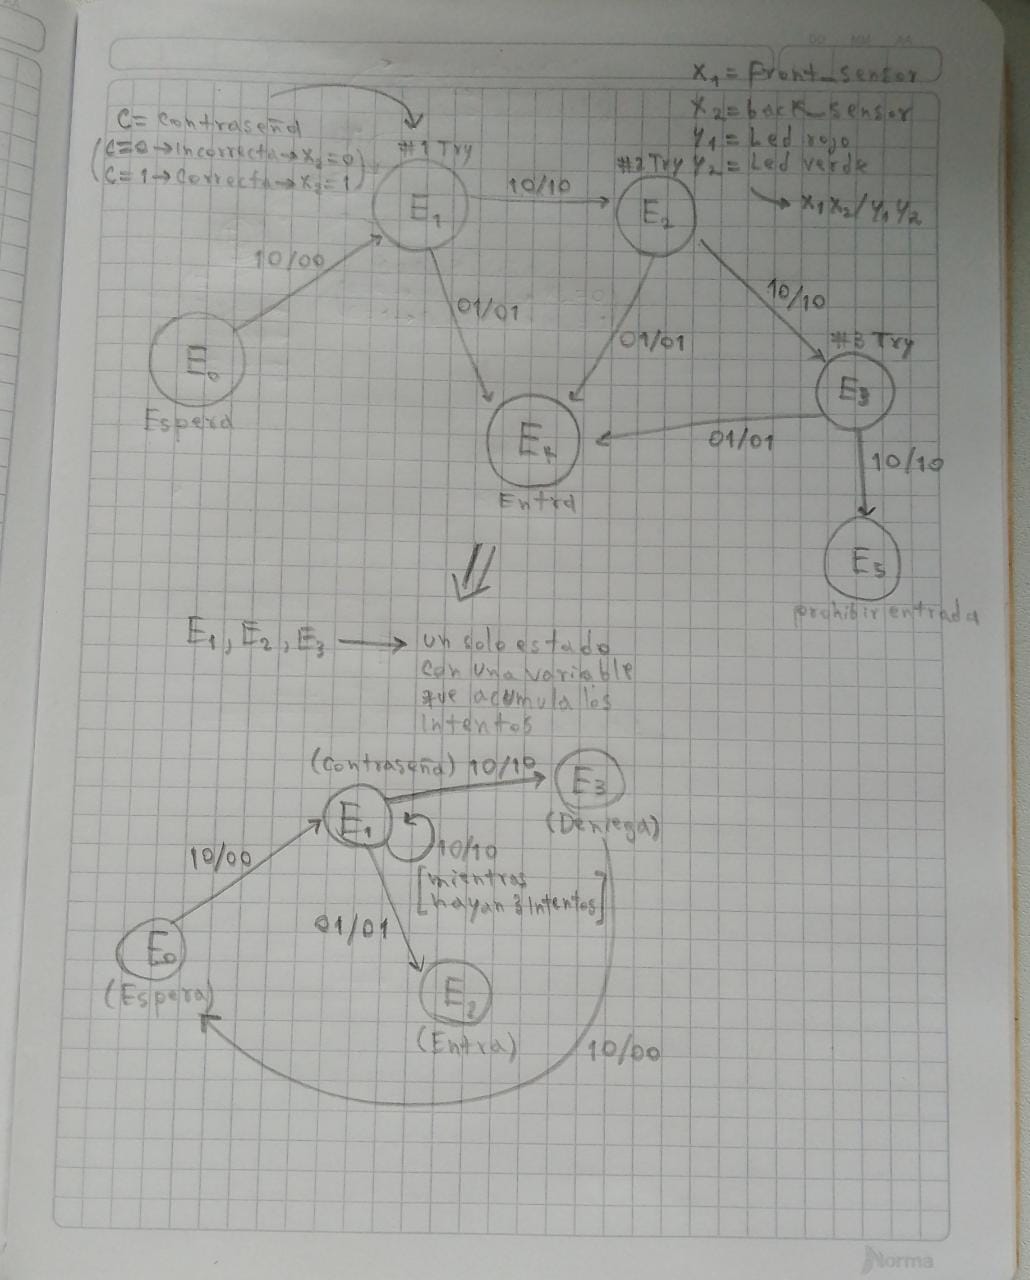 DD MM AA
X1 = Front_sensor
X2 = back_sensor
Y1 = Led rojo
Y2 = Led verde
X1X2/Y1Y2
C = contraseña
(C=0→Incorrecta→X2=0)
(C=1→Correcta→X2=1)
#1 Try
E1
10/10
#2 Try
E2
10/00
01/01
01/01
10/10
#3 Try
E0
Espera
E3
01/01
10/10
E4
Entra
E5
prohibir entrada
E1, E2, E3 → un solo estado
con una variable
que acumula los
intentos
(contraseña) 10/10
E3
(Deniega)
E1
10/10
[mientras
hayan 3 Intentos]
10/00
01/01
E0
(Espera)
E2
(Entra)
10/00
Norma